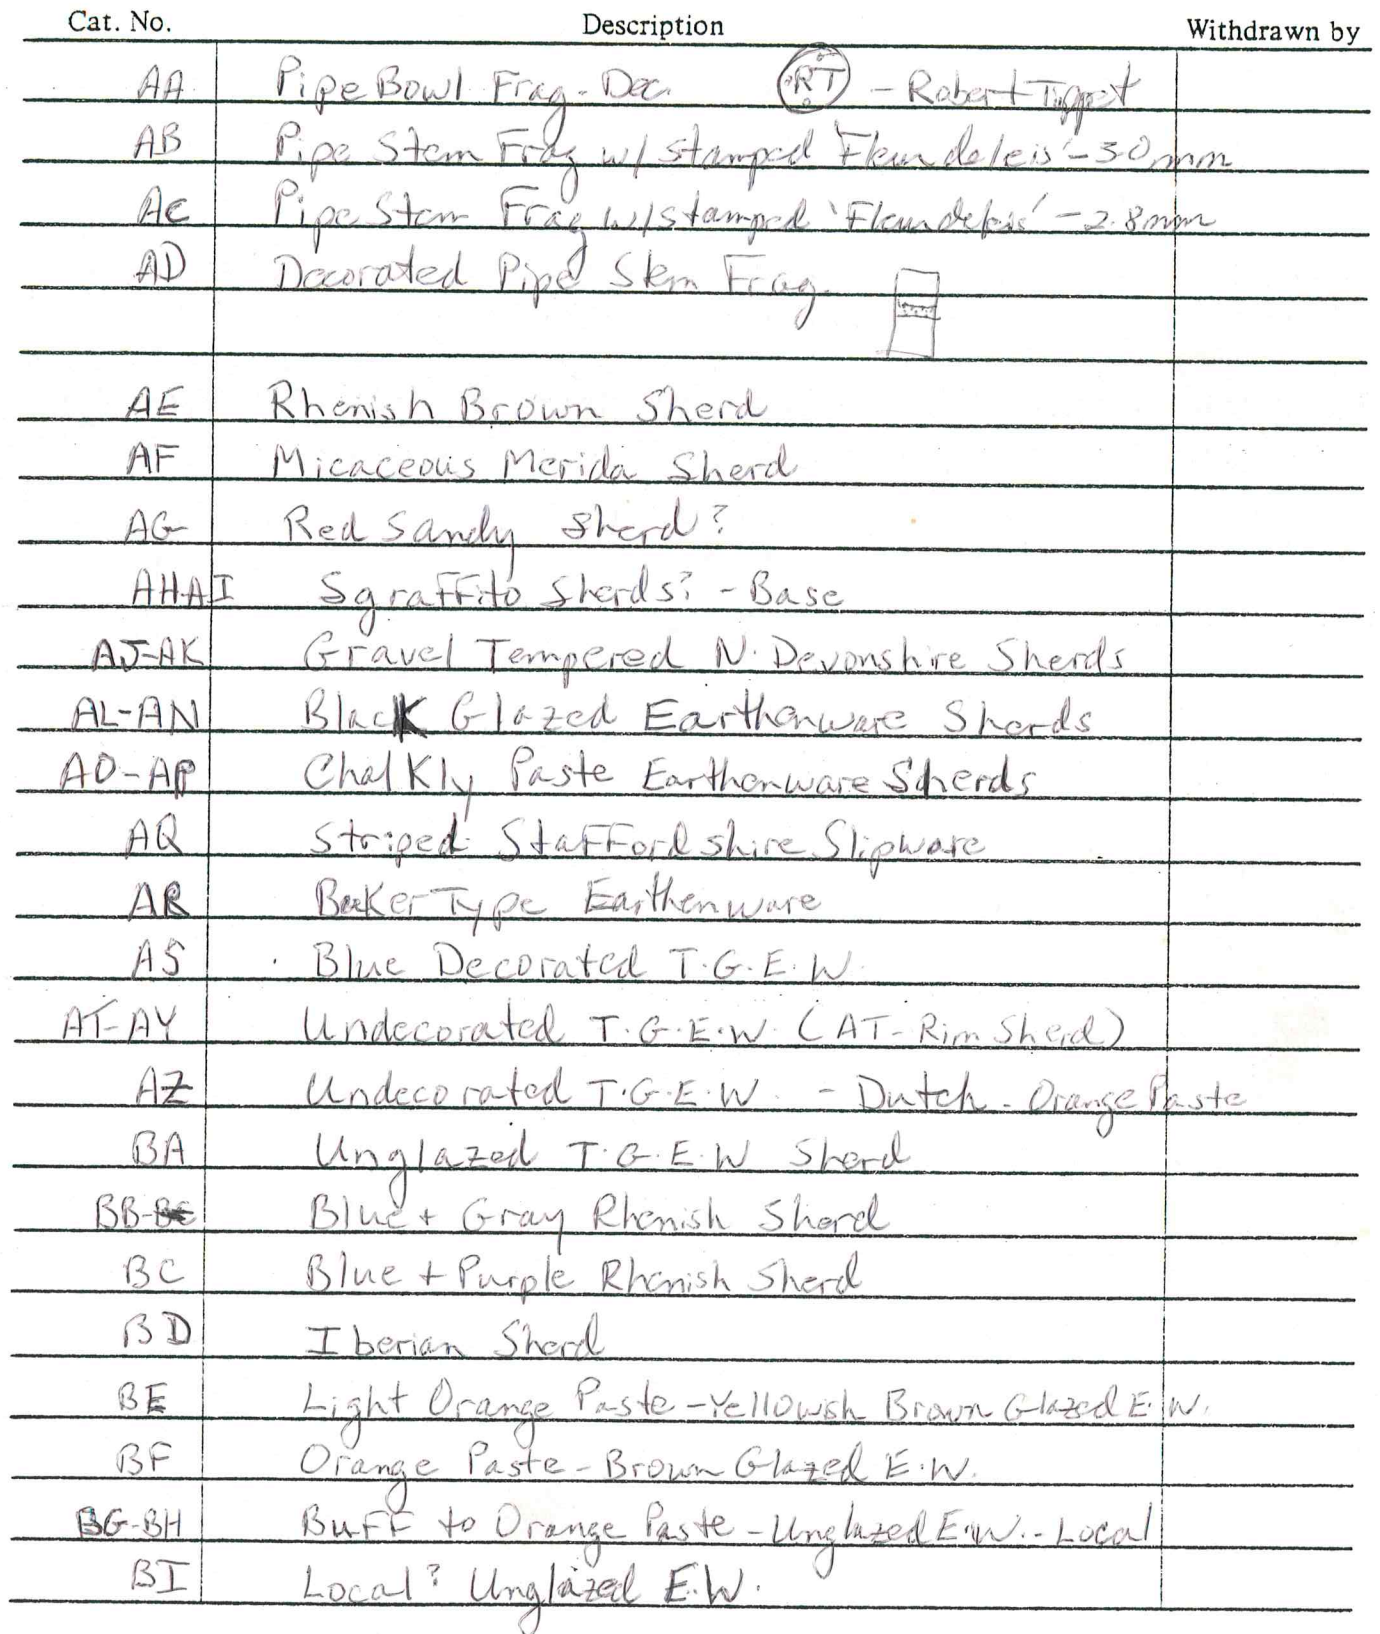 Cat. No. Description Withdrawn by
AA Pipe Bowl Frag - Dec. RT - Robert Tippet
AB Pipe Stem Frag w/ stamped 'Fleur de leis' - 3.0 mm
AC Pipe Stem Frag w/ stamped 'Fleur de leis' - 2.8 mm
AD Decorated Pipe Stem Frag.
AE Rhenish Brown Sherd
AF Micaceous Merida Sherd
AG Red Sandy Sherd?
AH-AI Sgraffito Sherds? - Base
AJ-AK Gravel Tempered N. Devonshire Sherds
AL-AN Black Glazed Earthenware Sherds
AO-AP Chalkly Paste Earthenware Sherds
AQ Striped Staffordshire Slipware
AR Type Earthenware
AS Blue Decorated T.G.E.W.
AT-AY Undecorated T.G.E.W. (AT-Rim Sherd)
AZ Undecorated T.G.E.W. - Dutch - Orange Paste
BA Unglazed T.G.E.W Sherd
BB- Blue + Gray Rhenish Sherd
BC Blue + Purple Rhenish Sherd
BD Iberian Sherd
BE Light Orange Paste - Yellowish Brown Glazed E.W.
BF Orange Paste - Brown Glazed E.W.
BG-BH Buff to Orange Paste - Unglazed E.W. - Local
BI Local? Unglazed E.W.